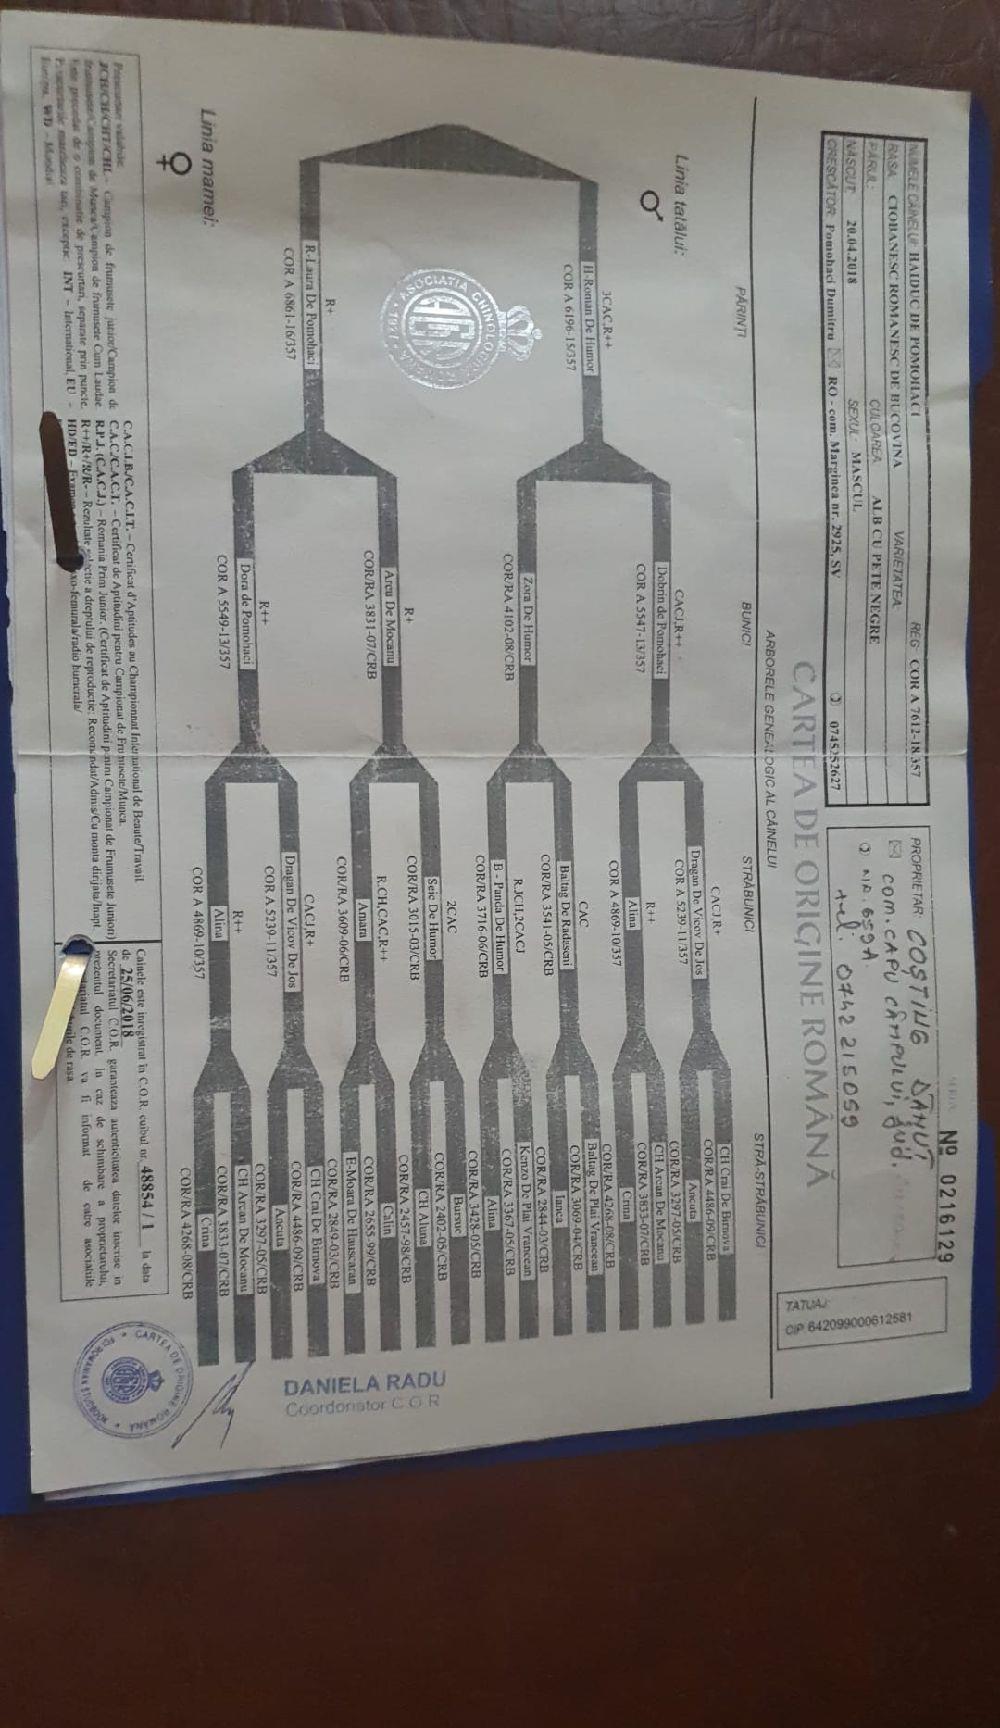 Nº 0216129
NUMELE CÂINELUI: HAIDUC DE POMOHACI REG: COR A 7612-18/357
RASA: CIOBANESC ROMANESC DE BUCOVINA VARIETATEA:
PĂRUL: CULOAREA: ALB CU PETE NEGRE
NĂSCUT: 20.04.2018 SEXUL: MASCUL
CRESCĂTOR: Pomohaci Dumitru RO - com. Marginea nr. 2925, SV 0745252627
PROPRIETAR: COȘTING DĂNUȚ
COM. CAPU CÂMPULUI, JUD.
NR. 659A.
tel: 0742 215059
TATUAJ:
CIP 642099000612581
CARTEA DE ORIGINE ROMÂNĂ
ARBORELE GENEALOGIC AL CÂINELUI
PĂRINȚI BUNICI STRĂBUNICI STRĂ-STRĂBUNICI
Linia tatălui:
♂
3CAC,R++
H-Roman De Humor
COR A 6196-15/357
CACJ,R++
Dobrin de Pomohaci
COR A 5547-13/357
Zora De Humor
COR/RA 4102-08/CRB
CACJ,R+
Dragan De Vicov De Jos
COR A 5239-11/357
R++
Alina
COR A 4869-10/357
CAC
Baltag De Radaseni
COR/RA 3541-05/CRB
R,JCH,2CACJ
B - Panda De Humor
COR/RA 3716-06/CRB
CH Crai De Birnova
COR/RA 4486-09/CRB
Ancuta
COR/RA 3297-05/CRB
CH Arcan De Mocanu
COR/RA 3833-07/CRB
Crina
COR/RA 4268-08/CRB
Baltag De Plai Vrancean
COR/RA 3069-04/CRB
Ianca
COR/RA 2844-03/CRB
Kenzo De Plai Vrancean
COR/RA 3367-05/CRB
Alina
COR/RA 3428-05/CRB
Linia mamei:
♀
R+
R-Laura De Pomohaci
COR A 6861-16/357
R+
Arcu De Mocanu
COR/RA 3831-07/CRB
R++
Dora de Pomohaci
COR A 5549-13/357
2CAC
Seic De Humor
COR/RA 3015-03/CRB
R,CH,CAC,R++
Amara
COR/RA 3609-06/CRB
CACJ,R+
Dragan De Vicov De Jos
COR A 5239-11/357
R++
Alina
COR A 4869-10/357
Bursuc
COR/RA 2402-05/CRB
CH Aluna
COR/RA 2457-98/CRB
Calin
COR/RA 2655-99/CRB
E-Moara De Hauscaran
COR/RA 2849-03/CRB
CH Crai De Birnova
COR/RA 4486-09/CRB
Ancuta
COR/RA 3297-05/CRB
CH Arcan De Mocanu
COR/RA 3833-07/CRB
Crina
COR/RA 4268-08/CRB
ASOCIATIA CHINOLOGICA
1921
DANIELA RADU
Coordonator C O R
CARTEA DE ORIGINE ROMANA
ROMANIAN STUDBOOK
Prescurtari valabile:
JCH/CH/CHT/CHL - Campion de frumusete junior/Campion de
frumusete/Campion de Munca/Campion de frumusete Cum Laudae
precedat de o combinatie de prescurtari, separate prin puncte.
INT - International, EU -
Europa, WD - Mondial
C.A.C.I.B./C.A.C.I.T. - Certificat d'Aptitudes au Championnat International de Beaute/Travail
C.A.C./C.A.C.T. - Certificat de Aptitudini pentru Campionat de Frumusete/Munca.
R.P.J. (C.A.C.J.) - Romania Prim Junior. (Certificat de Aptitudini pentru Campionat de Frumusete Juniori)
R++/R+/R/R- - Rezultate selectie a dreptului de reproductie: Recomandat/Admis/Cu monta dirijata/Inapt.
HD/ED - Examen
Cainele este inregistrat in C.O.R. cuibul nr. 48854 / 1 la data
de 25/06/2018
Secretariatul C.O.R. garanteaza autenticitatea datelor inscrise in
prezentul document. in caz de schimbare a proprietarului,
C.O.R va fi informat de catre asociatiile
de rasa